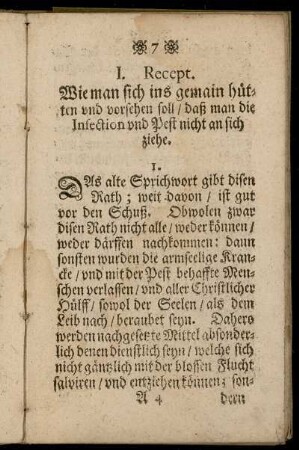 7
I. Recept.
Wie man sich ins gemain hüt-
ten vnd vorsehen soll / daß man die
Infection vnd Pest nicht an sich
ziehe.
1.
DAs alte Sprichwort gibt disen
Rath; weit davon / ist gut
vor den Schuß. Obwolen zwar
disen Rath nicht alle / weder können /
weder därffen nachkommen: dann
sonsten wurden die armseelige Kran-
cke / vnd mit der Pest behaffte Men-
schen verlassen / vnd aller Christlicher
Hülff / sowol der Seelen / als dem
Leib nach / beraubet seyn. Dahero
werden nachgesetzte Mittel absonder-
lich denen dienstlich seyn / welche sich
nicht gäntzlich mit der blossen Flucht
salviren / vnd entziehen können; son-
A 4 dern